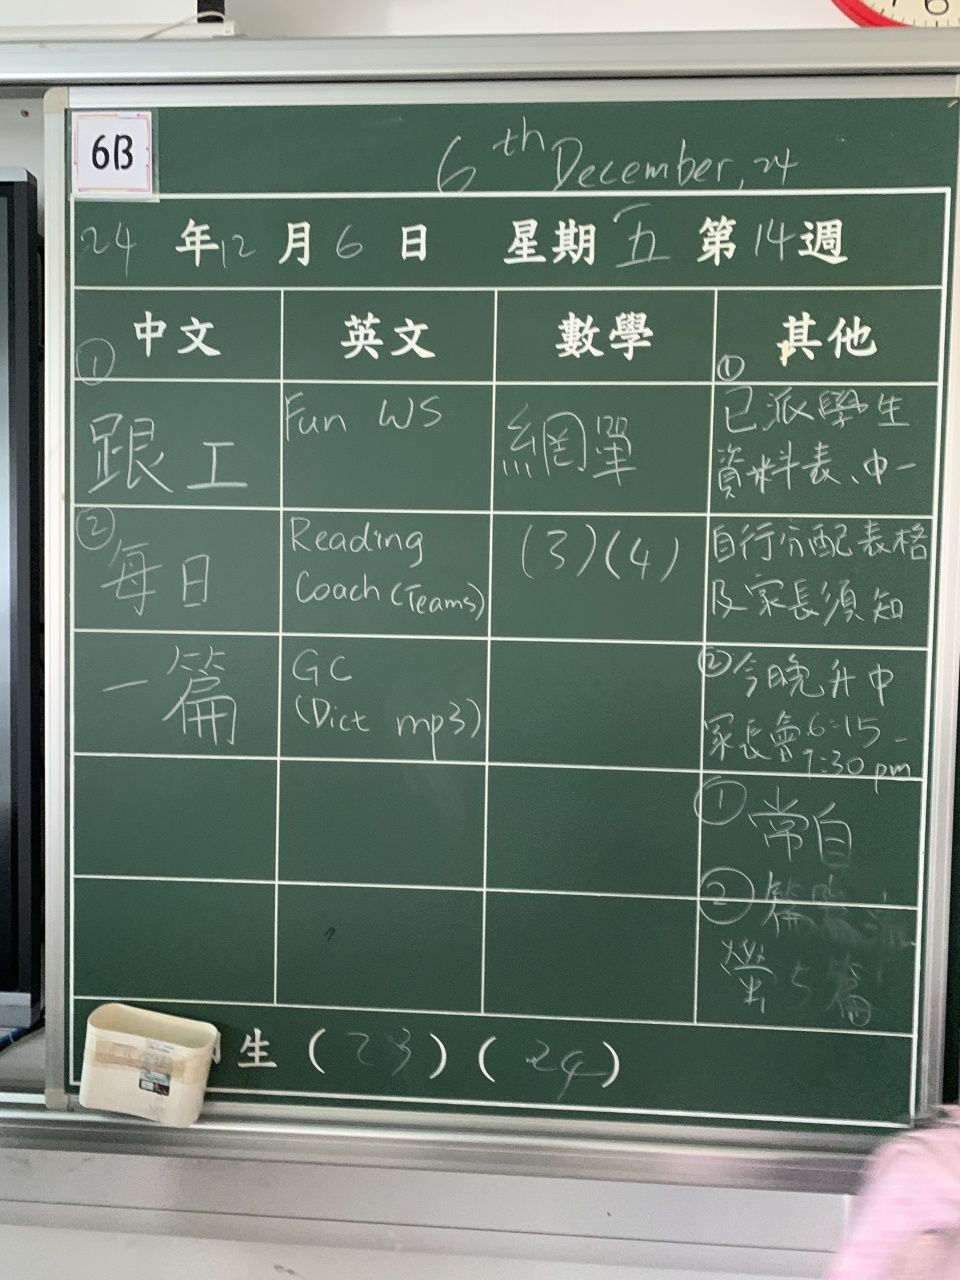 6B
6th December, 24
24年12月6日 星期五 第14週
中文 英文 數學 其他
①
跟工
②
每日
一篇
Fun WS
Reading
Coach (Teams)
GC
(Dict mp3)
網單
(3)(4)
①
已派學生
資料表、中一
自行分配表格
及家長須知
②今晚升中
家長會6:15-
7:30 pm
①常自
②篇
螢5篇
生(23)(24)